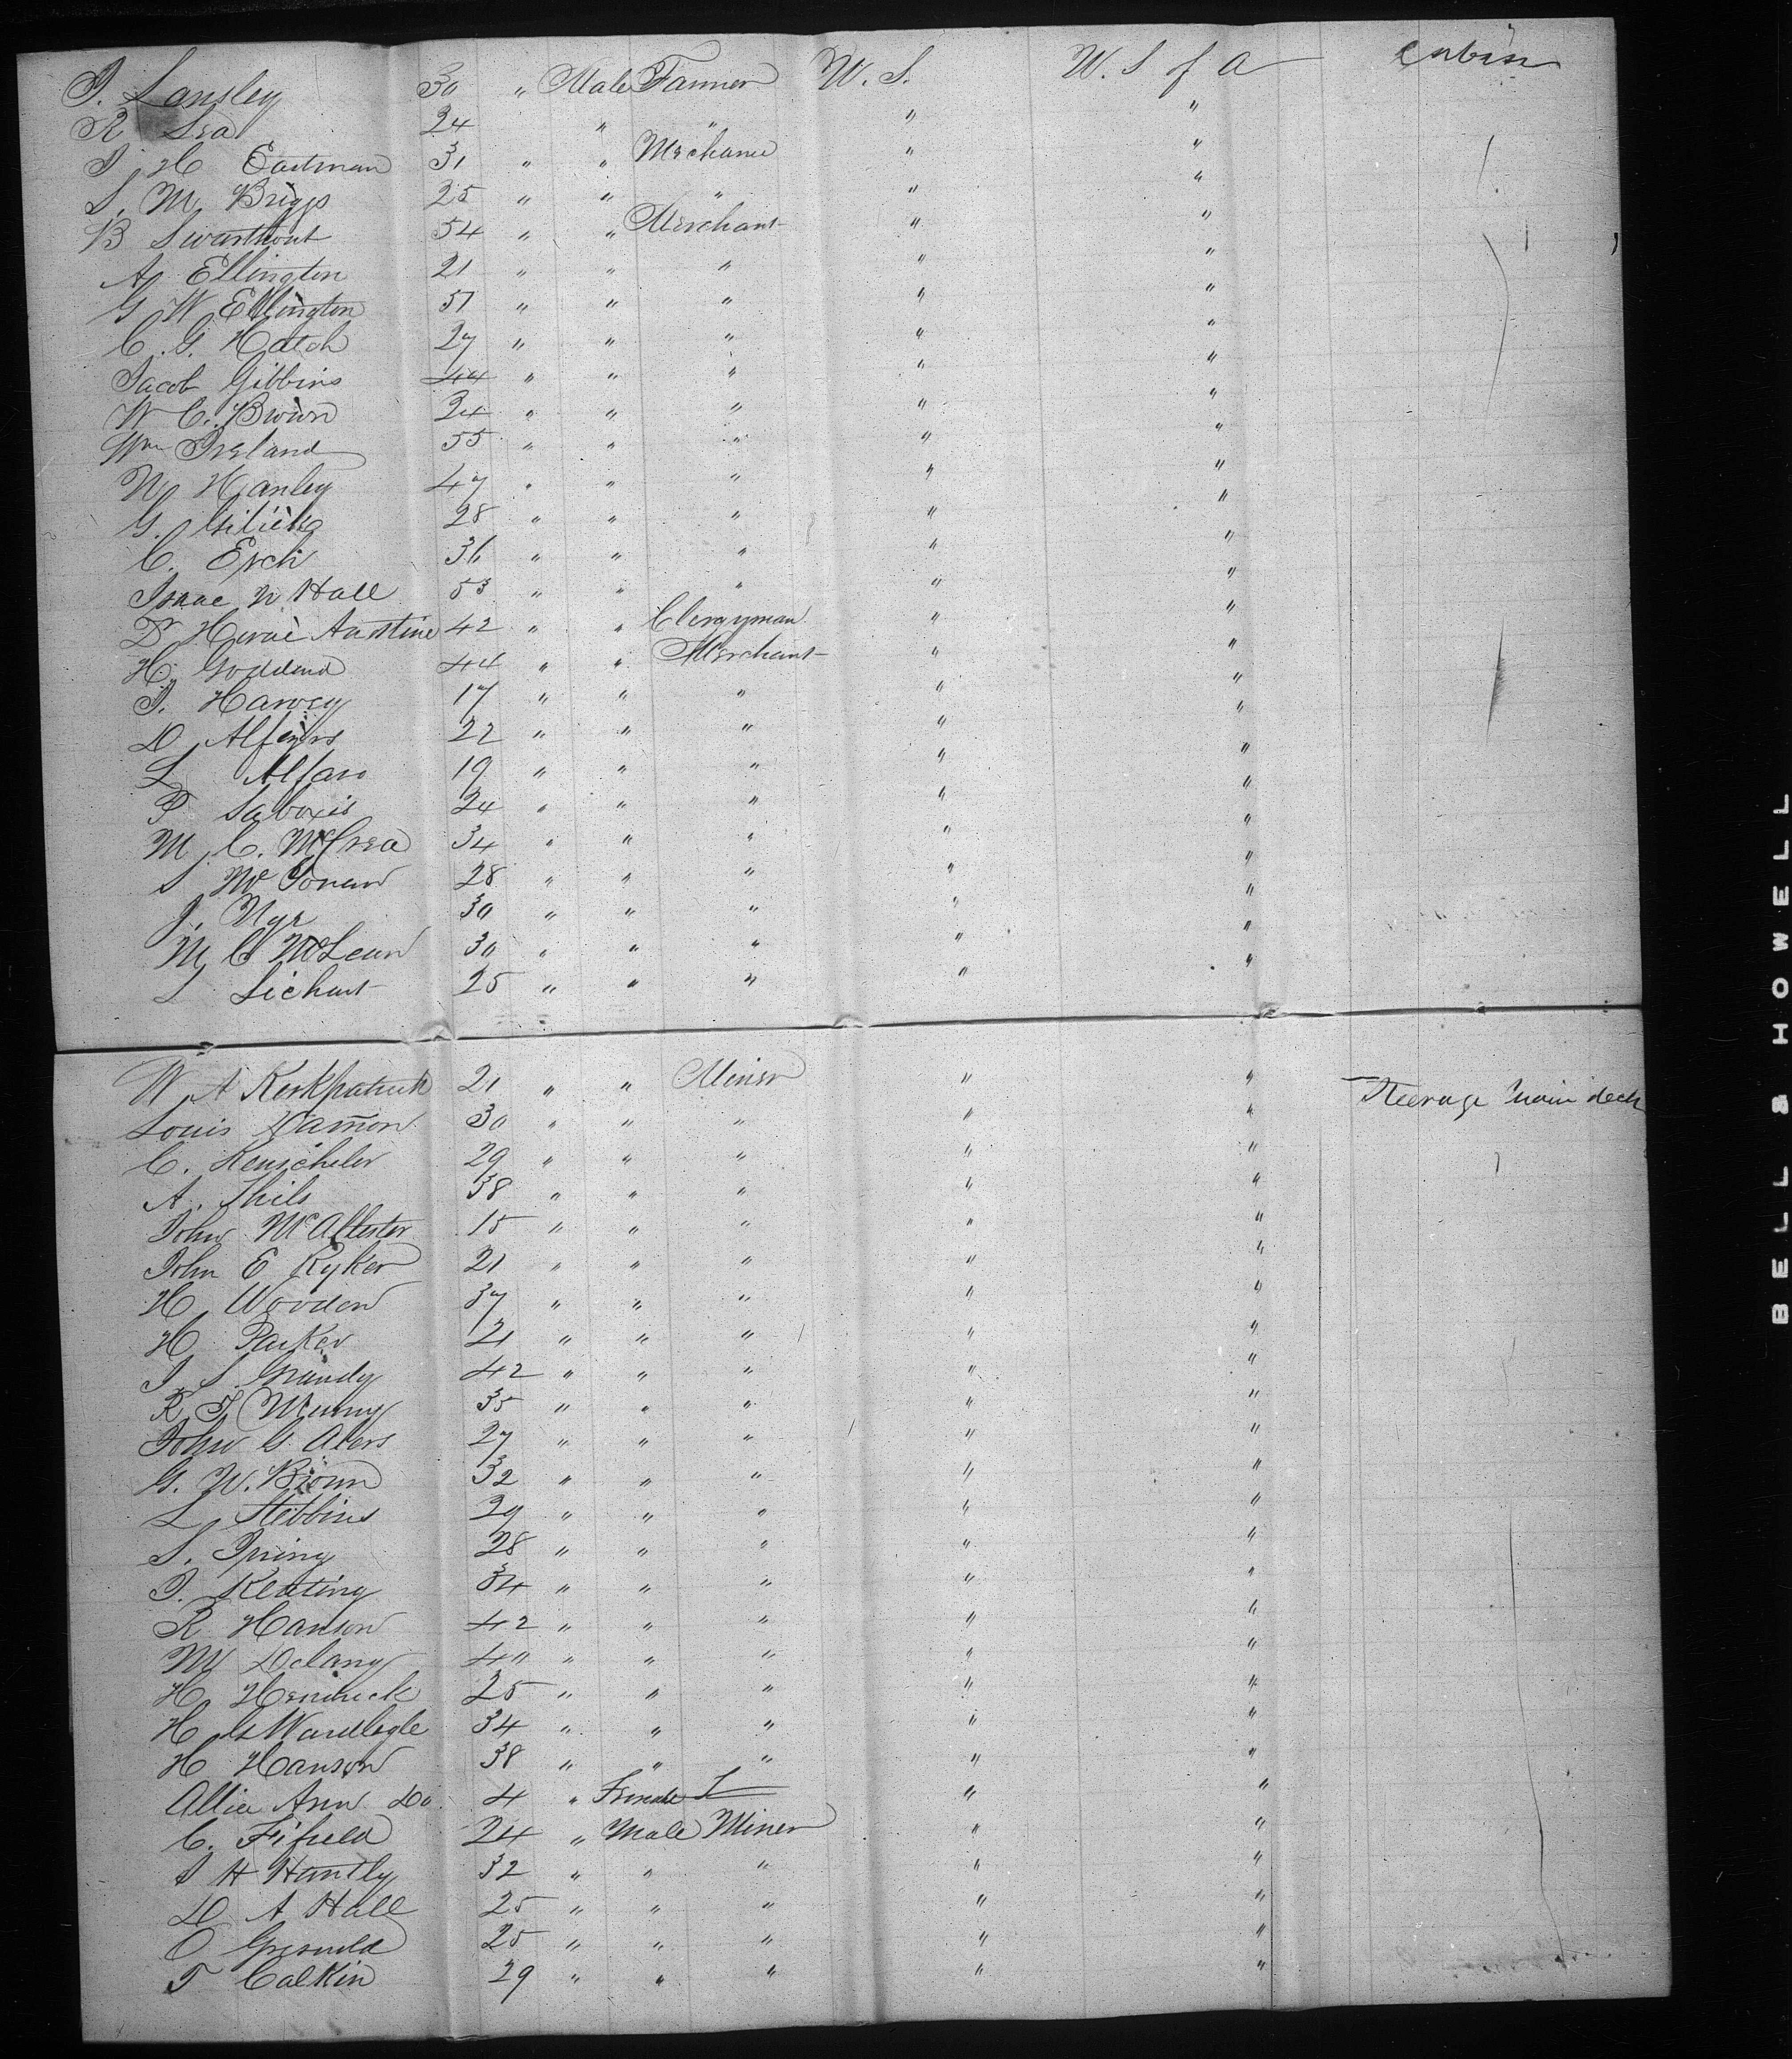 J. Langley 30 " Male Farmer U. S. U. S of A Cabin
R Lea 24 " " " "
J. H Eastman 31 " " Mechanic " "
S. M Briggs 25 " " " " "
B Swarthout 54 " " Merchant " "
A Ellington 21 " " " " "
G W Ellington 57 " " " " "
C. G. Hatch 27 " " " " "
Jacob Gibbins 44 " " " " "
W C. Brown 24 " " " " "
Wm Ireland 55 " " " " "
N Hanley 47 " " " " "
G. 28 " " " " "
C. Erch 36 " " " " "
Isaac N Hall 53 " " " " "
Dr Austine 42 " " Clergyman " "
H. Goddard 44 " " Merchant " "
J. Harvey 17 " " " " "
D 22 " " " " "
L Alfaro 19 " " " " "
P 24 " " " " "
M C. McCrea 34 " " " " "
S 28 " " " " "
J. Nye 30 " " " " "
M C McLean 30 " " " " "
S 25 " " " " "
W A Kirkpatrick 21 " " Miner " " Steerage main deck
Louis Damon 30 " " " " "
C. 29 " " " " "
A. Thils 38 " " " " "
John McAllester 15 " " " " "
John E Ryker 21 " " " " "
H Wooden 37 " " " " "
H Parker 21 " " " " "
J S. Grandy 42 " " " " "
R J Murny 35 " " " " "
John G. Akers 27 " " " " "
G. W. Brown 32 " " " " "
L Stebbins 29 " " " " "
S. 28 " " " " "
J. Keating 34 " " " " "
R Hanson 42 " " " " "
M Delany 40 " " " " "
H 25 " " " " "
H G Wardlogle 34 " " " " "
H Hanson 38 " " " " "
Allie Ann Do 4 " Female " "
C. Fifield 24 " Male Miner " "
J H Hantly 32 " " " " "
D A Hall 25 " " " " "
O Griswold 25 " " " " "
T Calkin 29 " " " " "
BELL & HOWELL